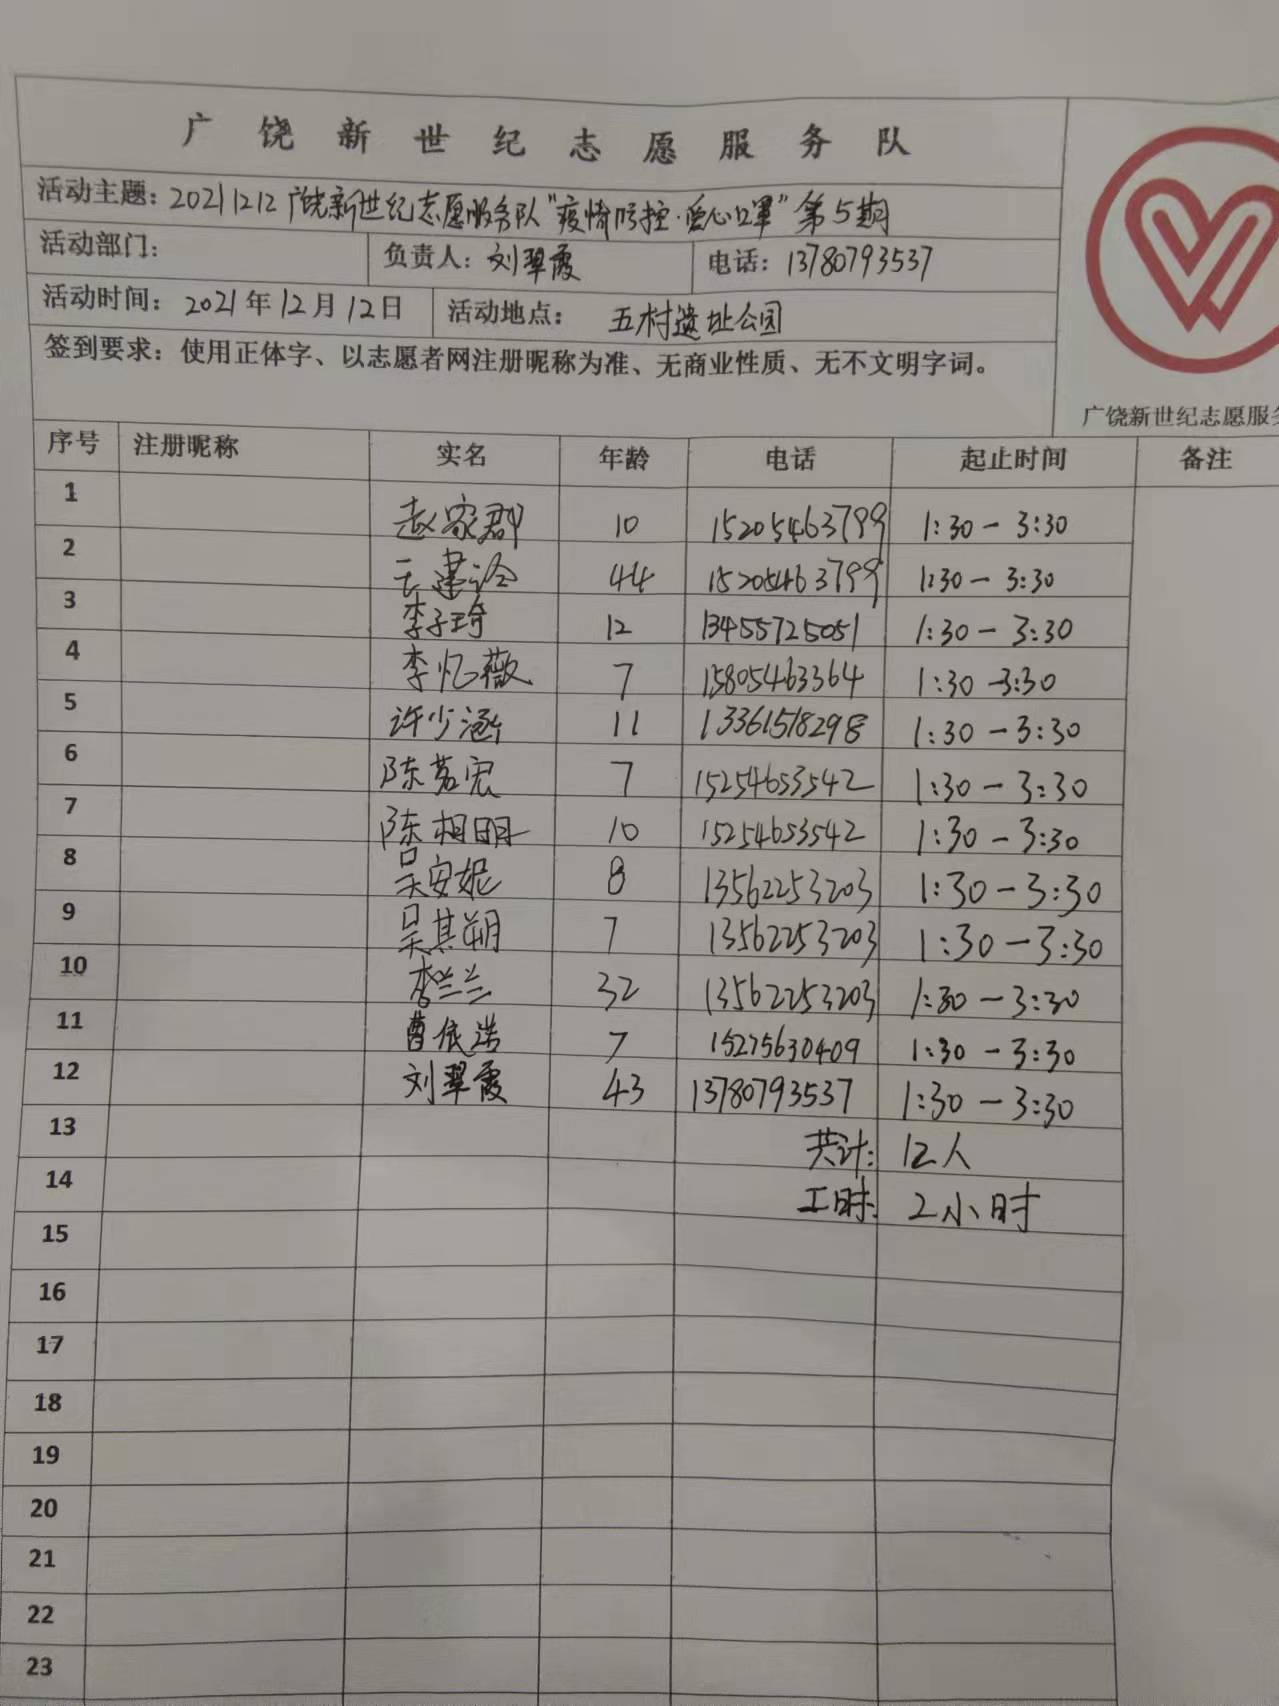 广饶新世纪志愿服务队
活动主题：20211212广饶新世纪志愿服务队“疫情防控·爱心口罩”第5期
活动部门： 负责人：刘翠霞 电话：13780793537
活动时间：2021年12月12日 活动地点：五村遗址公园
签到要求：使用正体字、以志愿者网注册昵称为准、无商业性质、无不文明字词。
广饶新世纪志愿服务
序号 注册昵称 实名 年龄 电话 起止时间 备注
1 赵家郡 10 15205463799 1:30-3:30
2 王建 44 15205463799 1:30-3:30
3 李子琦 12 13455725051 1:30-3:30
4 李忆薇 7 15805463364 1:30-3:30
5 许少涵 11 13361518298 1:30-3:30
6 陈茗宏 7 15254653542 1:30-3:30
7 陈相明 10 15254653542 1:30-3:30
8 吴安妮 8 13562253203 1:30-3:30
9 吴其朔 7 13562253203 1:30-3:30
10 李兰兰 32 13562253203 1:30-3:30
11 曹依诺 7 15275630409 1:30-3:30
12 刘翠霞 43 13780793537 1:30-3:30
13 共计：12人
14 工时：2小时
15
16
17
18
19
20
21
22
23